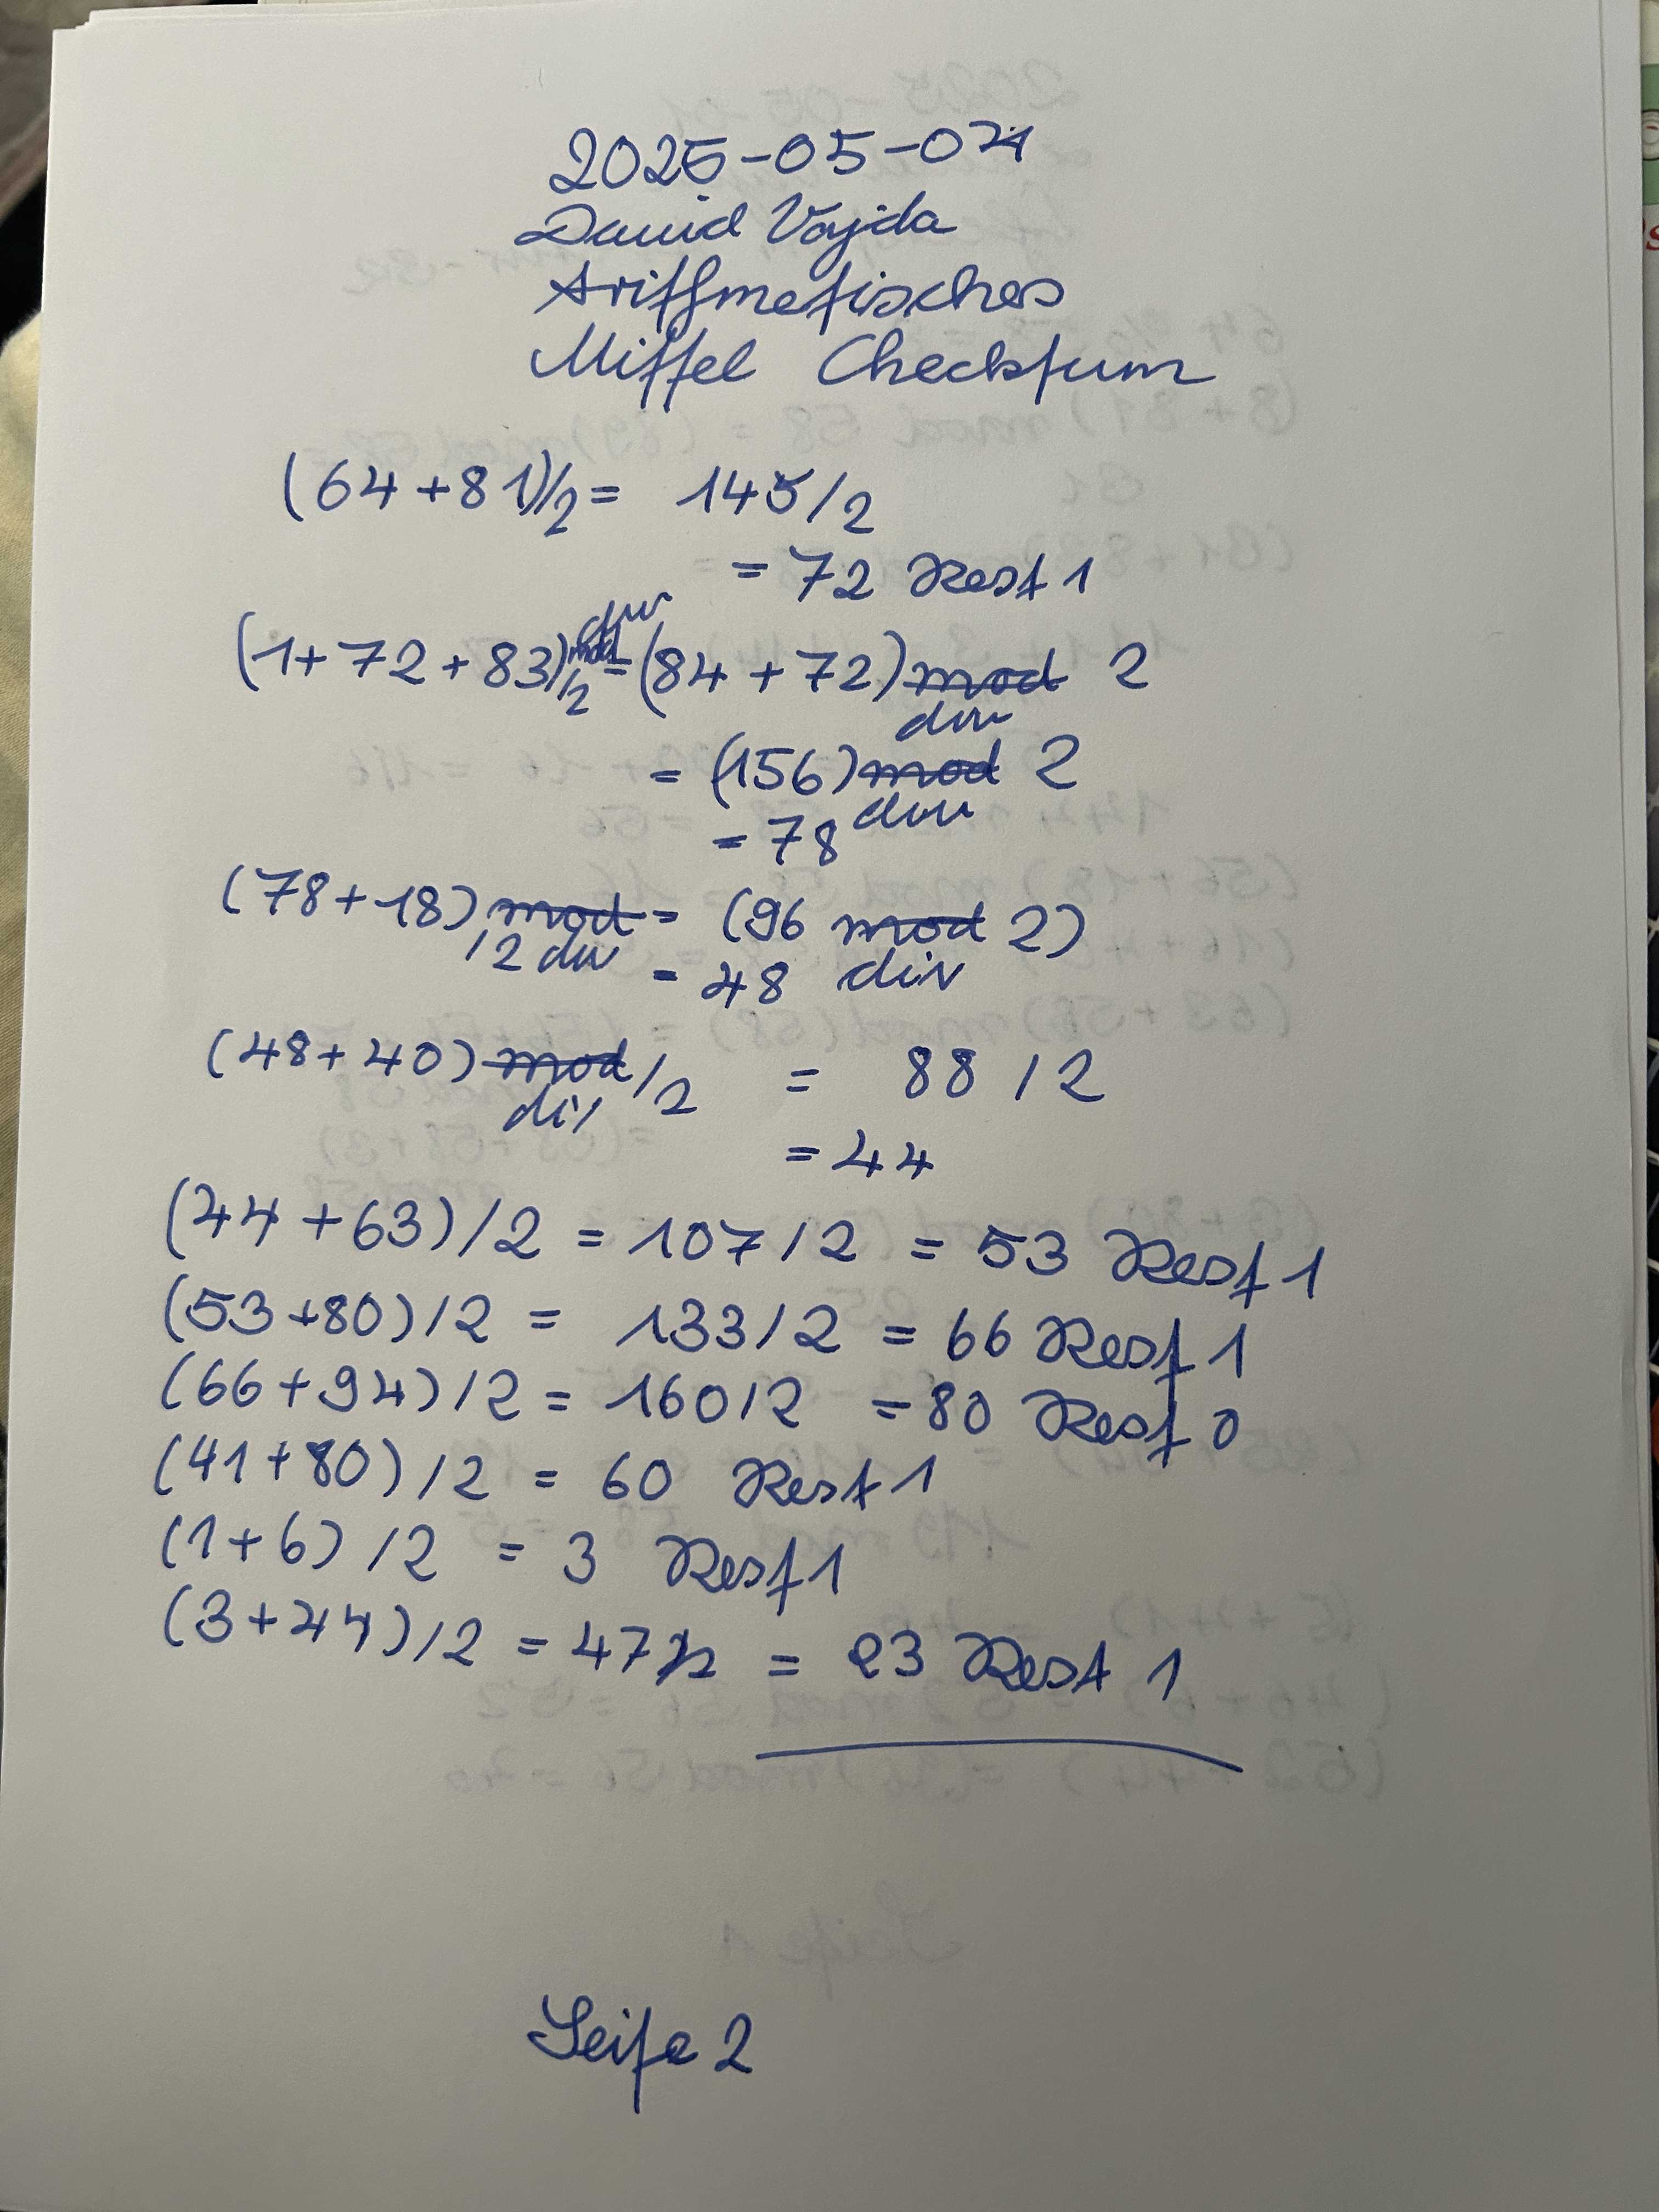 2025-05-04
David Vajda
Arithmetisches
Mittel Checksum
(64+81)/2 = 145/2
= 72 Rest 1
div
(1+72+83) mod /2 = (84+72) mod 2
div
= (156) mod 2
div
= 78
(78+18) mod = (96 mod 2)
/2 div = 48 div
(48+40) mod /2 = 88/2
div
= 44
(44+63)/2 = 107/2 = 53 Rest 1
(53+80)/2 = 133/2 = 66 Rest 1
(66+94)/2 = 160/2 = 80 Rest 0
(41+80)/2 = 60 Rest 1
(1+6)/2 = 3 Rest 1
(3+44)/2 = 47/2 = 23 Rest 1
Seite 2